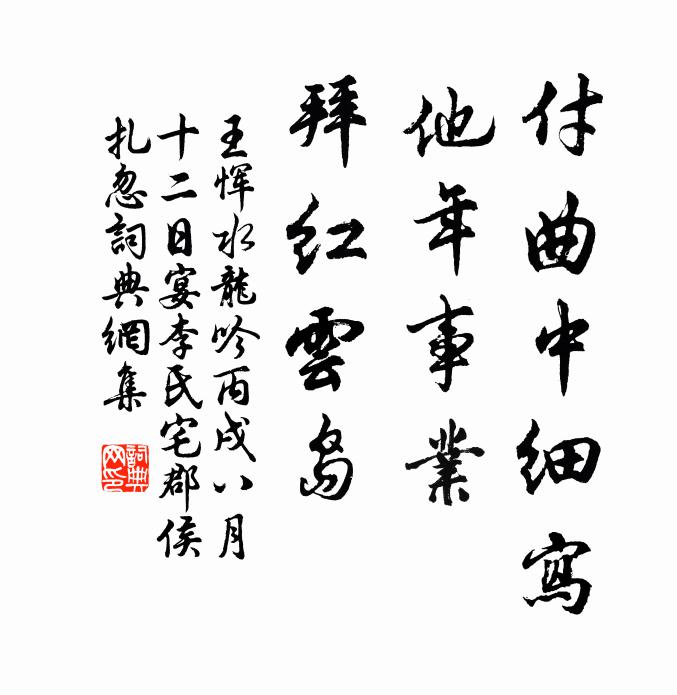 付曲中細寫
他年事業
拜紅雲島
王惲水龍吟丙戌八月
十二日宴李氏宅郡侯
扎忽詞典網集
詞典
网印